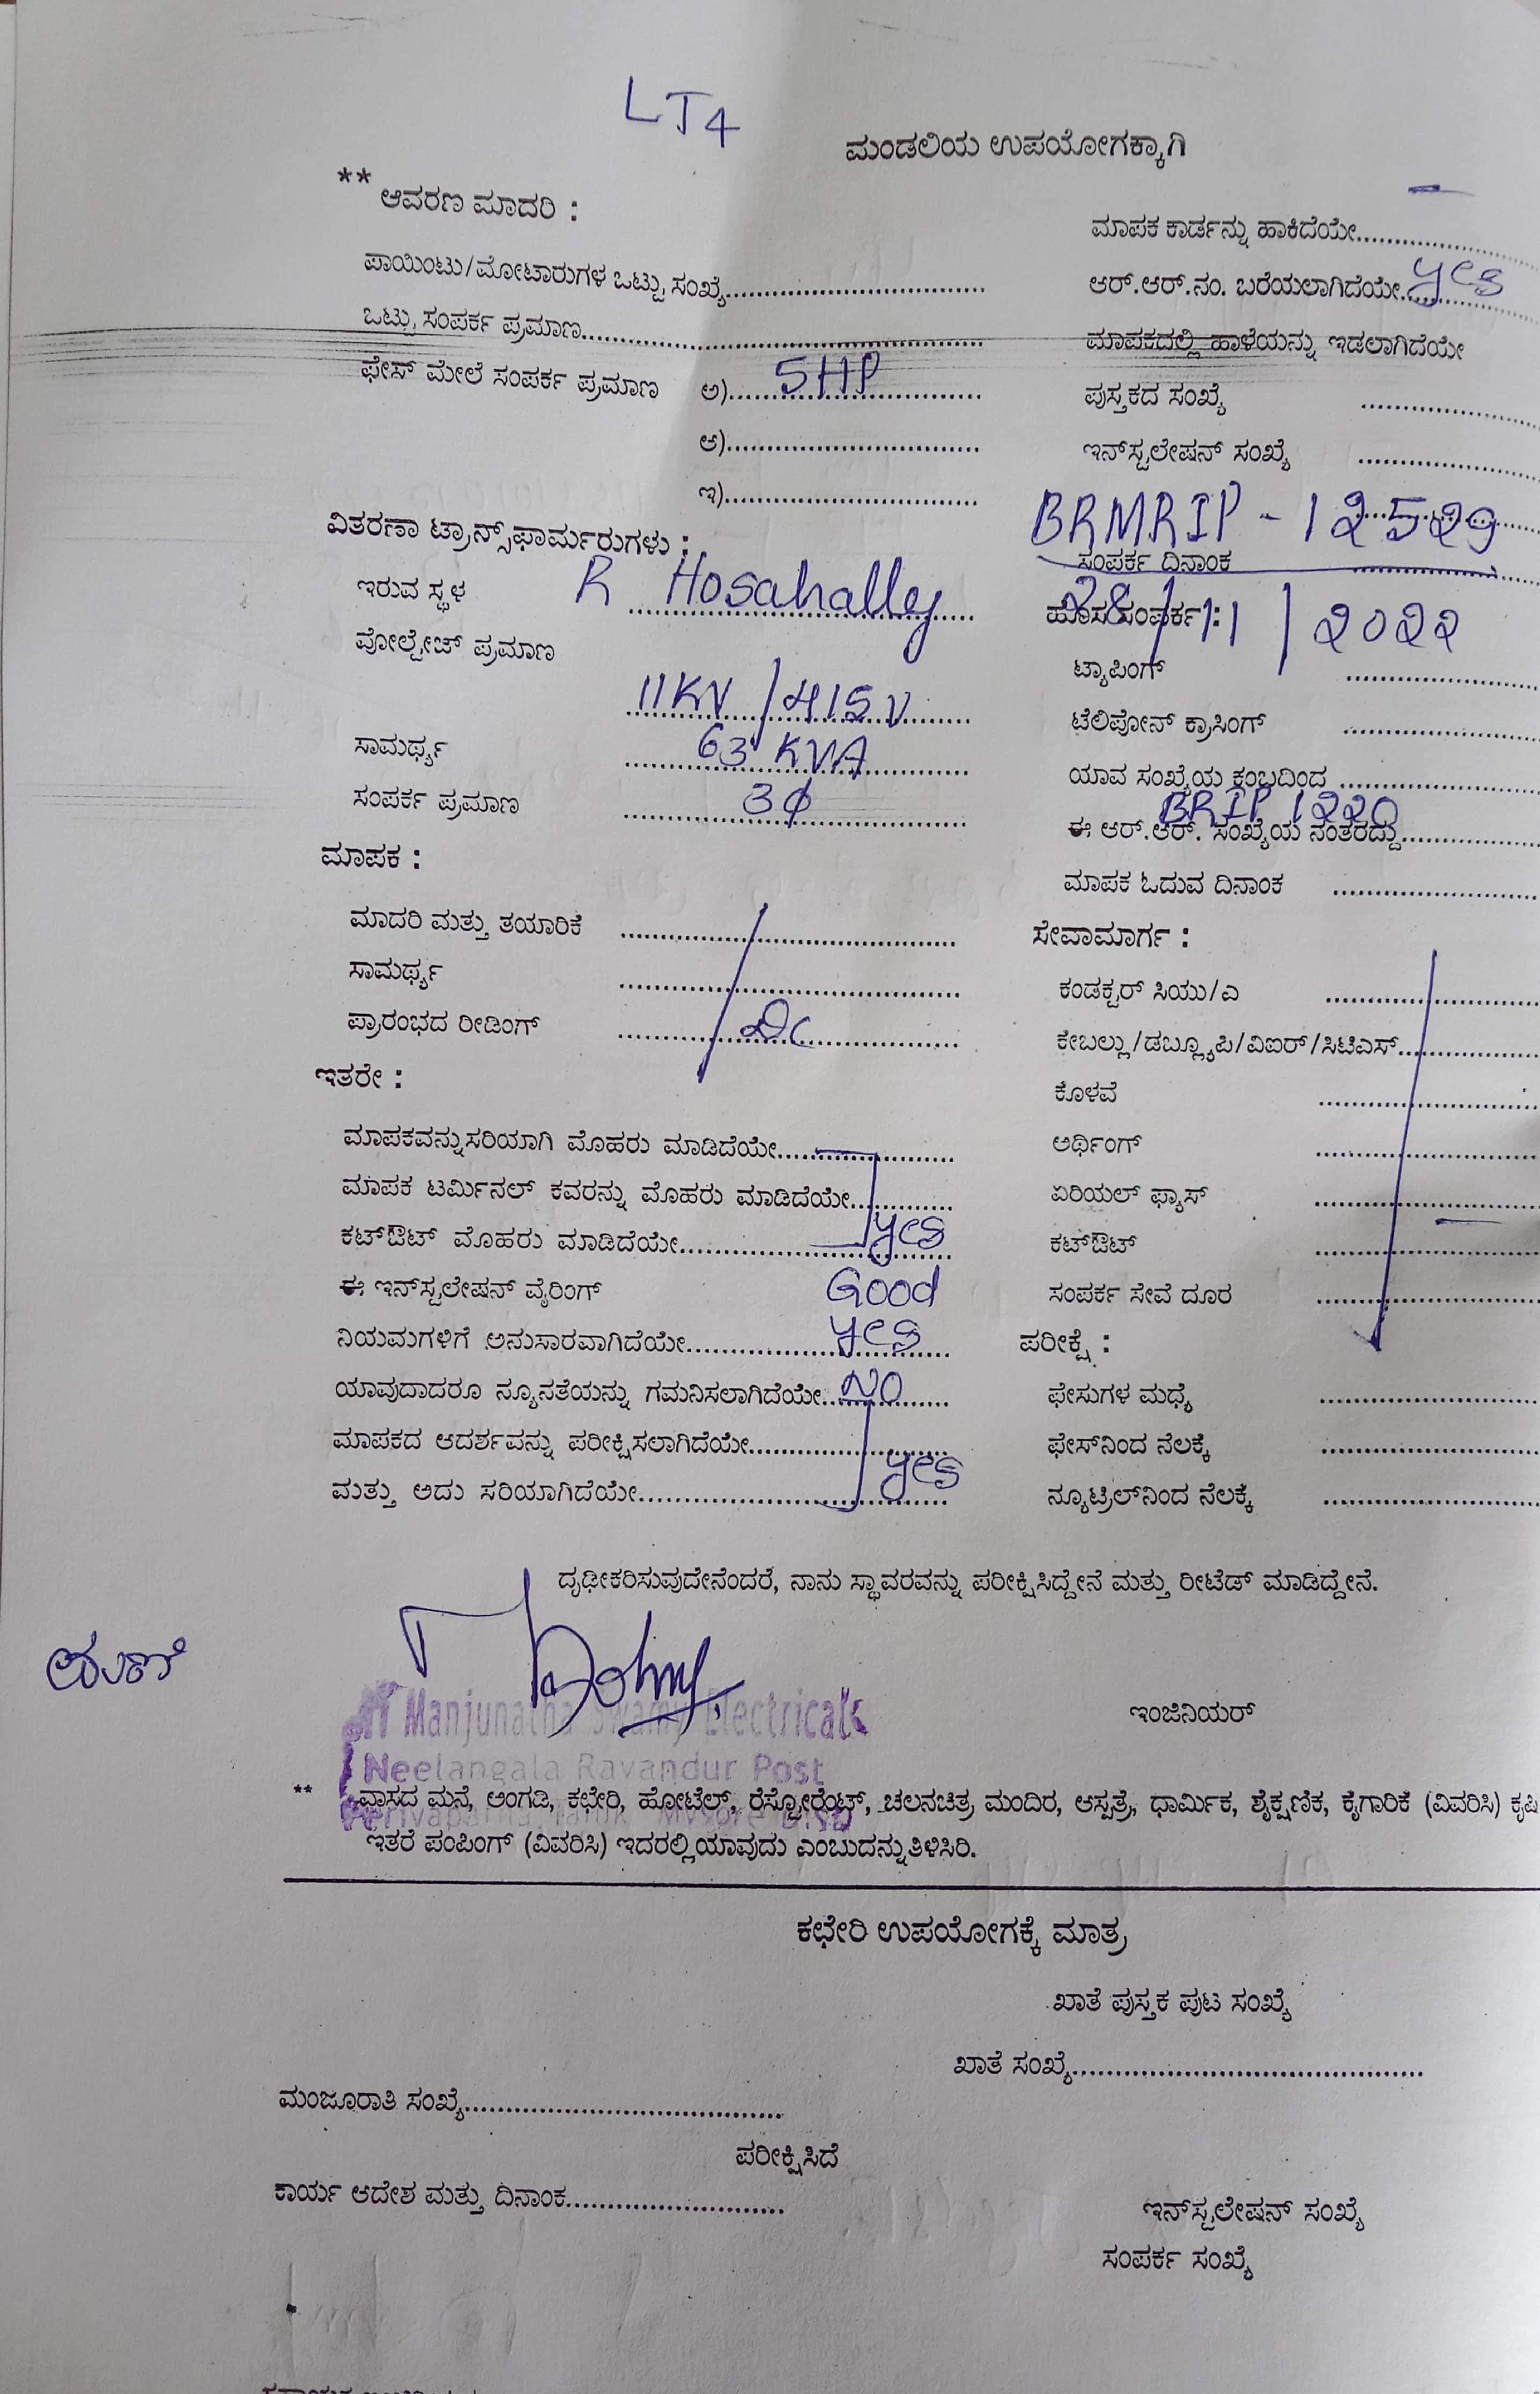 LT4
ಮಂಡಲಿಯ ಉಪಯೋಗಕ್ಕಾಗಿ
** ಆವರಣ ಮಾದರಿ :
ಪಾಯಿಂಟು/ಮೋಟಾರುಗಳ ಒಟ್ಟು ಸಂಖ್ಯೆ..............................
ಒಟ್ಟು ಸಂಪರ್ಕ ಪ್ರಮಾಣ..............................
ಫೇಸ್ ಮೇಲೆ ಸಂಪರ್ಕ ಪ್ರಮಾಣ ಅ)...... 5HP ......
ಆ)..............................
ಇ)..............................
ವಿತರಣಾ ಟ್ರಾನ್ಸ್‌ಫಾರ್ಮರುಗಳು :
ಇರುವ ಸ್ಥಳ R Hosahalley
ವೋಲ್ಟೇಜ್ ಪ್ರಮಾಣ
11KV / 415V
ಸಾಮರ್ಥ್ಯ 63 KVA
ಸಂಪರ್ಕ ಪ್ರಮಾಣ 3φ
ಮಾಪಕ :
ಮಾದರಿ ಮತ್ತು ತಯಾರಿಕೆ ..............................
ಸಾಮರ್ಥ್ಯ ..............................
ಪ್ರಾರಂಭದ ರೀಡಿಂಗ್ ..............................
ಇತರೇ :
ಮಾಪಕವನ್ನುಸರಿಯಾಗಿ ಮೊಹರು ಮಾಡಿದೆಯೇ....................
ಮಾಪಕ ಟರ್ಮಿನಲ್ ಕವರನ್ನು ಮೊಹರು ಮಾಡಿದೆಯೇ..............
ಕಟ್‌ಔಟ್ ಮೊಹರು ಮಾಡಿದೆಯೇ.................... yes
ಈ ಇನ್‌ಸ್ಟಲೇಷನ್ ವೈರಿಂಗ್ Good
ನಿಯಮಗಳಿಗೆ ಅನುಸಾರವಾಗಿದೆಯೇ.................... yes
ಯಾವುದಾದರೂ ನ್ಯೂನತೆಯನ್ನು ಗಮನಿಸಲಾಗಿದೆಯೇ.. NO
ಮಾಪಕದ ಆದರ್ಶವನ್ನು ಪರೀಕ್ಷಿಸಲಾಗಿದೆಯೇ....................
ಮತ್ತು ಅದು ಸರಿಯಾಗಿದೆಯೇ.................... yes
ಮಾಪಕ ಕಾರ್ಡನ್ನು ಹಾಕಿದೆಯೇ....................
ಆರ್.ಆರ್.ನಂ. ಬರೆಯಲಾಗಿದೆಯೇ.. yes
ಮಾಪಕದಲ್ಲಿ ಹಾಳೆಯನ್ನು ಇಡಲಾಗಿದೆಯೇ
ಪುಸ್ತಕದ ಸಂಖ್ಯೆ ....................
ಇನ್‌ಸ್ಟಲೇಷನ್ ಸಂಖ್ಯೆ ....................
BRMRIP - 12529
ಸಂಪರ್ಕ ದಿನಾಂಕ ....................
ಹೊಸ ಸಂಪರ್ಕ : 28/11/2022
ಟ್ಯಾಪಿಂಗ್ ....................
ಟೆಲಿಪೋನ್ ಕ್ರಾಸಿಂಗ್ ....................
ಯಾವ ಸಂಖ್ಯೆಯ ಕ್ರಂಭದಿಂದ ....................
BRIP 1220
ಈ ಆರ್.ಆರ್. ಸಂಖ್ಯೆಯ ನಂತರದ್ದು....................
ಮಾಪಕ ಓದುವ ದಿನಾಂಕ ....................
ಸೇವಾಮಾರ್ಗ :
ಕಂಡಕ್ಟರ್ ಸಿಯು/ಎ ....................
ಕೇಬಲ್ಲು/ಡಬ್ಲ್ಯೂಪಿ/ವಿಐರ್/ಸಿಟಿಎಸ್....................
ಕೊಳವೆ ....................
ಅರ್ಥಿಂಗ್ ....................
ಏರಿಯಲ್ ಫ್ಯಾಸ್ ....................
ಕಟ್‌ಔಟ್ ....................
ಸಂಪರ್ಕ ಸೇವೆ ದೂರ ....................
ಪರೀಕ್ಷೆ :
ಫೇಸುಗಳ ಮಧ್ಯೆ ....................
ಫೇಸ್‌ನಿಂದ ನೆಲಕ್ಕೆ ....................
ನ್ಯೂಟ್ರಲ್‌ನಿಂದ ನೆಲಕ್ಕೆ ....................
ದೃಢೀಕರಿಸುವುದೇನೆಂದರೆ, ನಾನು ಸ್ಥಾವರವನ್ನು ಪರೀಕ್ಷಿಸಿದ್ದೇನೆ ಮತ್ತು ರೀಟೆಡ್ ಮಾಡಿದ್ದೇನೆ.
Manjunatha Swamy Electricals
ಇಂಜಿನಿಯರ್
Neelangala Ravandur Post
** ವಾಸದ ಮನೆ, ಅಂಗಡಿ, ಕಛೇರಿ, ಹೋಟೆಲ್, ರೆಸ್ಟೋರೆಂಟ್, ಚಲನಚಿತ್ರ ಮಂದಿರ, ಆಸ್ಪತ್ರೆ, ಧಾರ್ಮಿಕ, ಶೈಕ್ಷಣಿಕ, ಕೈಗಾರಿಕೆ (ವಿವರಿಸಿ) ಕೃಷಿ
ಇತರೆ ಪಂಪಿಂಗ್ (ವಿವರಿಸಿ) ಇದರಲ್ಲಿಯಾವುದು ಎಂಬುದನ್ನುತಿಳಿಸಿರಿ.
ಕಛೇರಿ ಉಪಯೋಗಕ್ಕೆ ಮಾತ್ರ
ಖಾತೆ ಪುಸ್ತಕ ಪುಟ ಸಂಖ್ಯೆ
ಖಾತೆ ಸಂಖ್ಯೆ........................................
ಮಂಜೂರಾತಿ ಸಂಖ್ಯೆ........................................
ಪರೀಕ್ಷಿಸಿದೆ
ಕಾರ್ಯ ಆದೇಶ ಮತ್ತು ದಿನಾಂಕ..............................
ಇನ್‌ಸ್ಟಲೇಷನ್ ಸಂಖ್ಯೆ
ಸಂಪರ್ಕ ಸಂಖ್ಯೆ